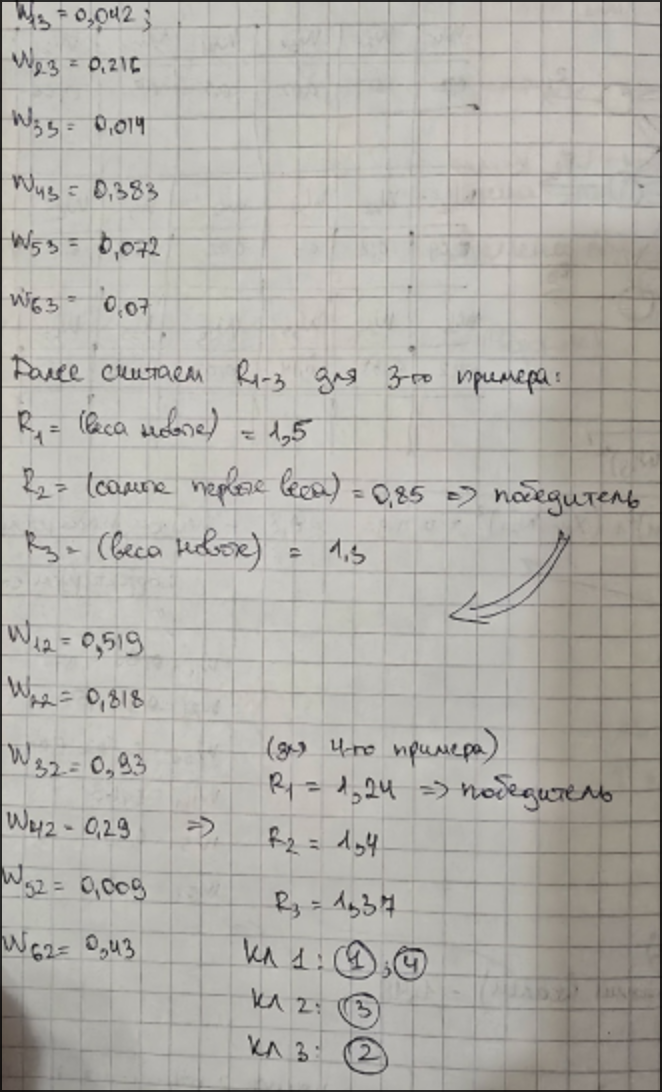 W13 = 0,042;
W23 = 0,216
W33 = 0,014
W43 = 0,383
W53 = 0,072
W63 = 0,07
Далее считаем R1-3 для 3-го примера:
R1 = (веса новые) = 1,5
R2 = (самые первые веса) = 0,85 => победитель
R3 = (веса новые) = 1,3
W12 = 0,519
W22 = 0,818
W32 = 0,93
(для 4-го примера)
R1 = 1,24 => победитель
W42 = 0,29 =>
R2 = 1,4
W52 = 0,009
R3 = 1,37
W62 = 0,43
Кл 1: 1, 4
Кл 2: 3
Кл 3: 2